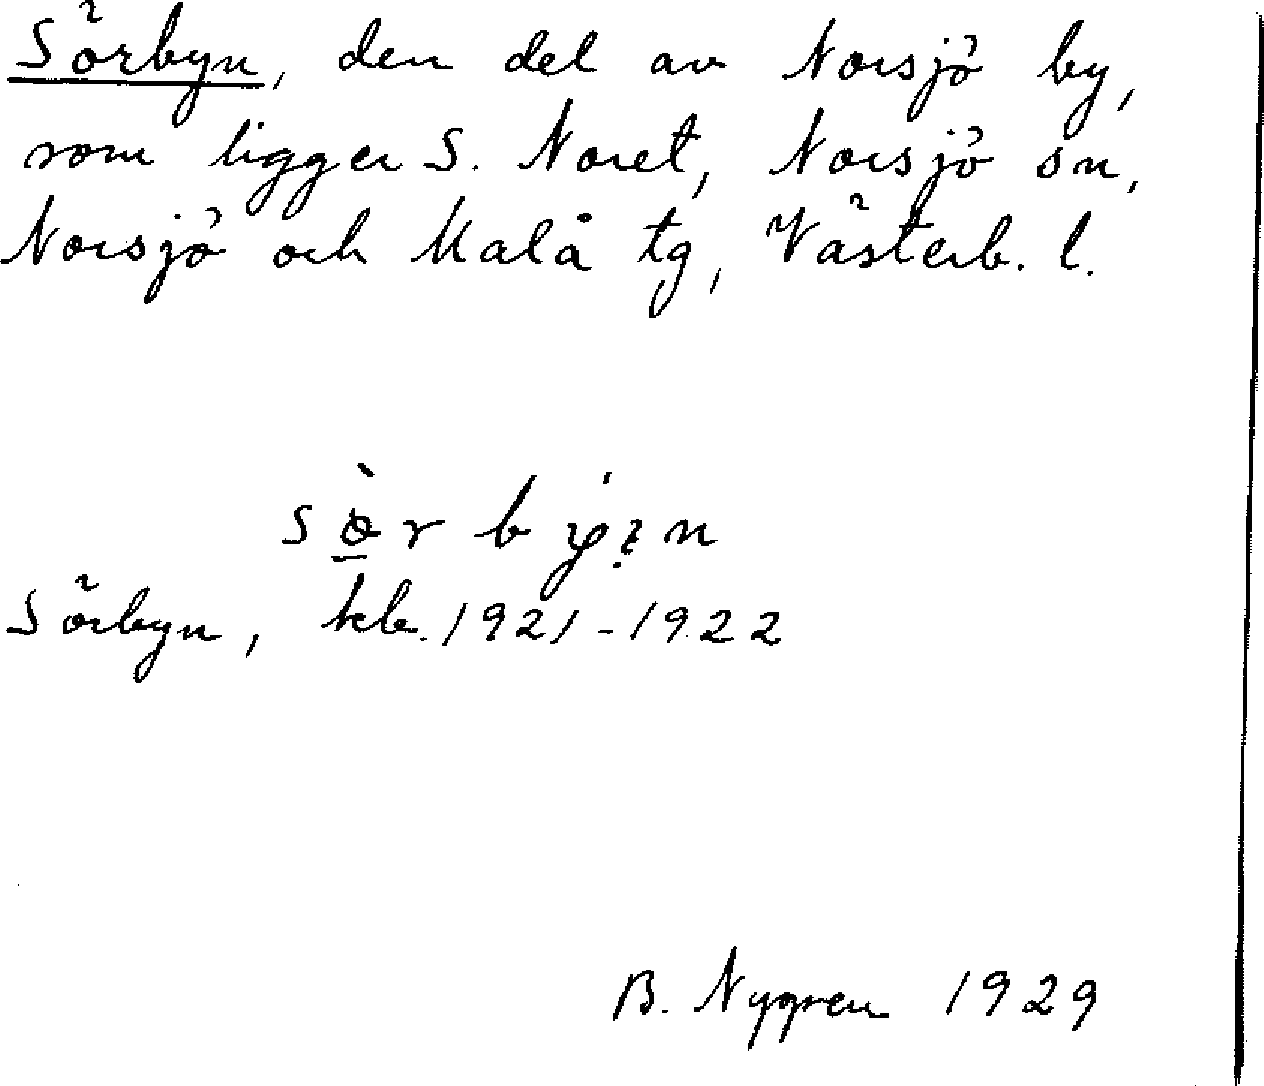 Sörbyn, den del av Norsjö by,
som ligger S. Noret, Norsjö sn,
Norsjö och Malå tg, Västerb. l.
Sörbyn, kb. 1921-1922
B. Nygren 1929